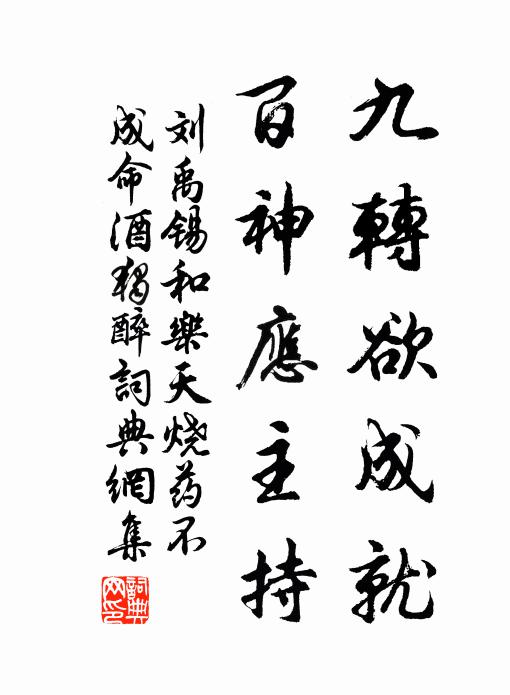 九轉欲成就
百神應主持
刘禹锡和樂天烧药不
成命酒獨醉詞典網集
詞典網印